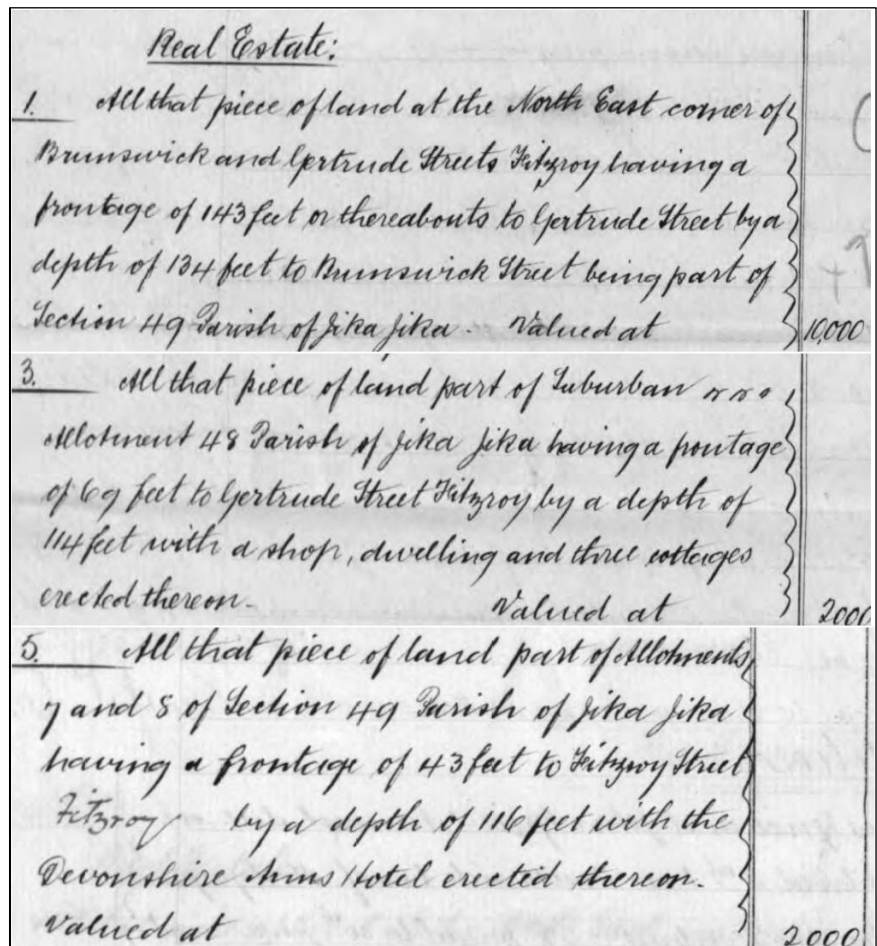 Real Estate:
1. All that piece of land at the North East corner of
Brunswick and Gertrude Streets Fitzroy having a
frontage of 143 feet or thereabouts to Gertrude Street by a
depth of 134 feet to Brunswick Street being part of
Section 49 Parish of Jika Jika - Valued at 10,000
3. All that piece of land part of Suburban
Allotment 48 Parish of Jika Jika having a frontage
of 69 feet to Gertrude Street Fitzroy by a depth of
114 feet with a shop, dwelling and three cottages
erected thereon. Valued at 2000
5. All that piece of land part of Allotments
7 and 8 of Section 49 Parish of Jika Jika
having a frontage of 43 feet to Fitzroy Street
Fitzroy by a depth of 116 feet with the
Devonshire Arms Hotel erected thereon.
Valued at 2000